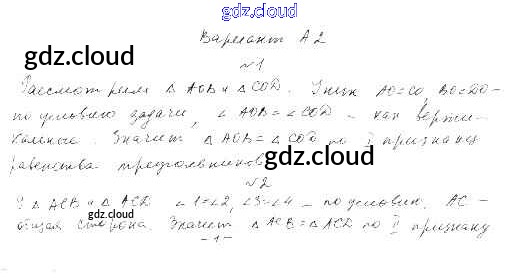 gdz.cloud
Вариант А2
gdz.cloud
№1
Рассмотрим △ AOB и △ COD. У них AO=CO, BO=DO-
по условию задачи, ∠ AOB = ∠ COD - как верти-
кальные. Значит △ AOB = △ COD по I признаку
равенства треугольников
gdz.cloud
№2
У △ ACB и △ ACD ∠1=∠2, ∠3=∠4 - по условию. AC -
gdz.cloud
общая сторона. Значит △ ACB = △ ACD по II признаку
-1-